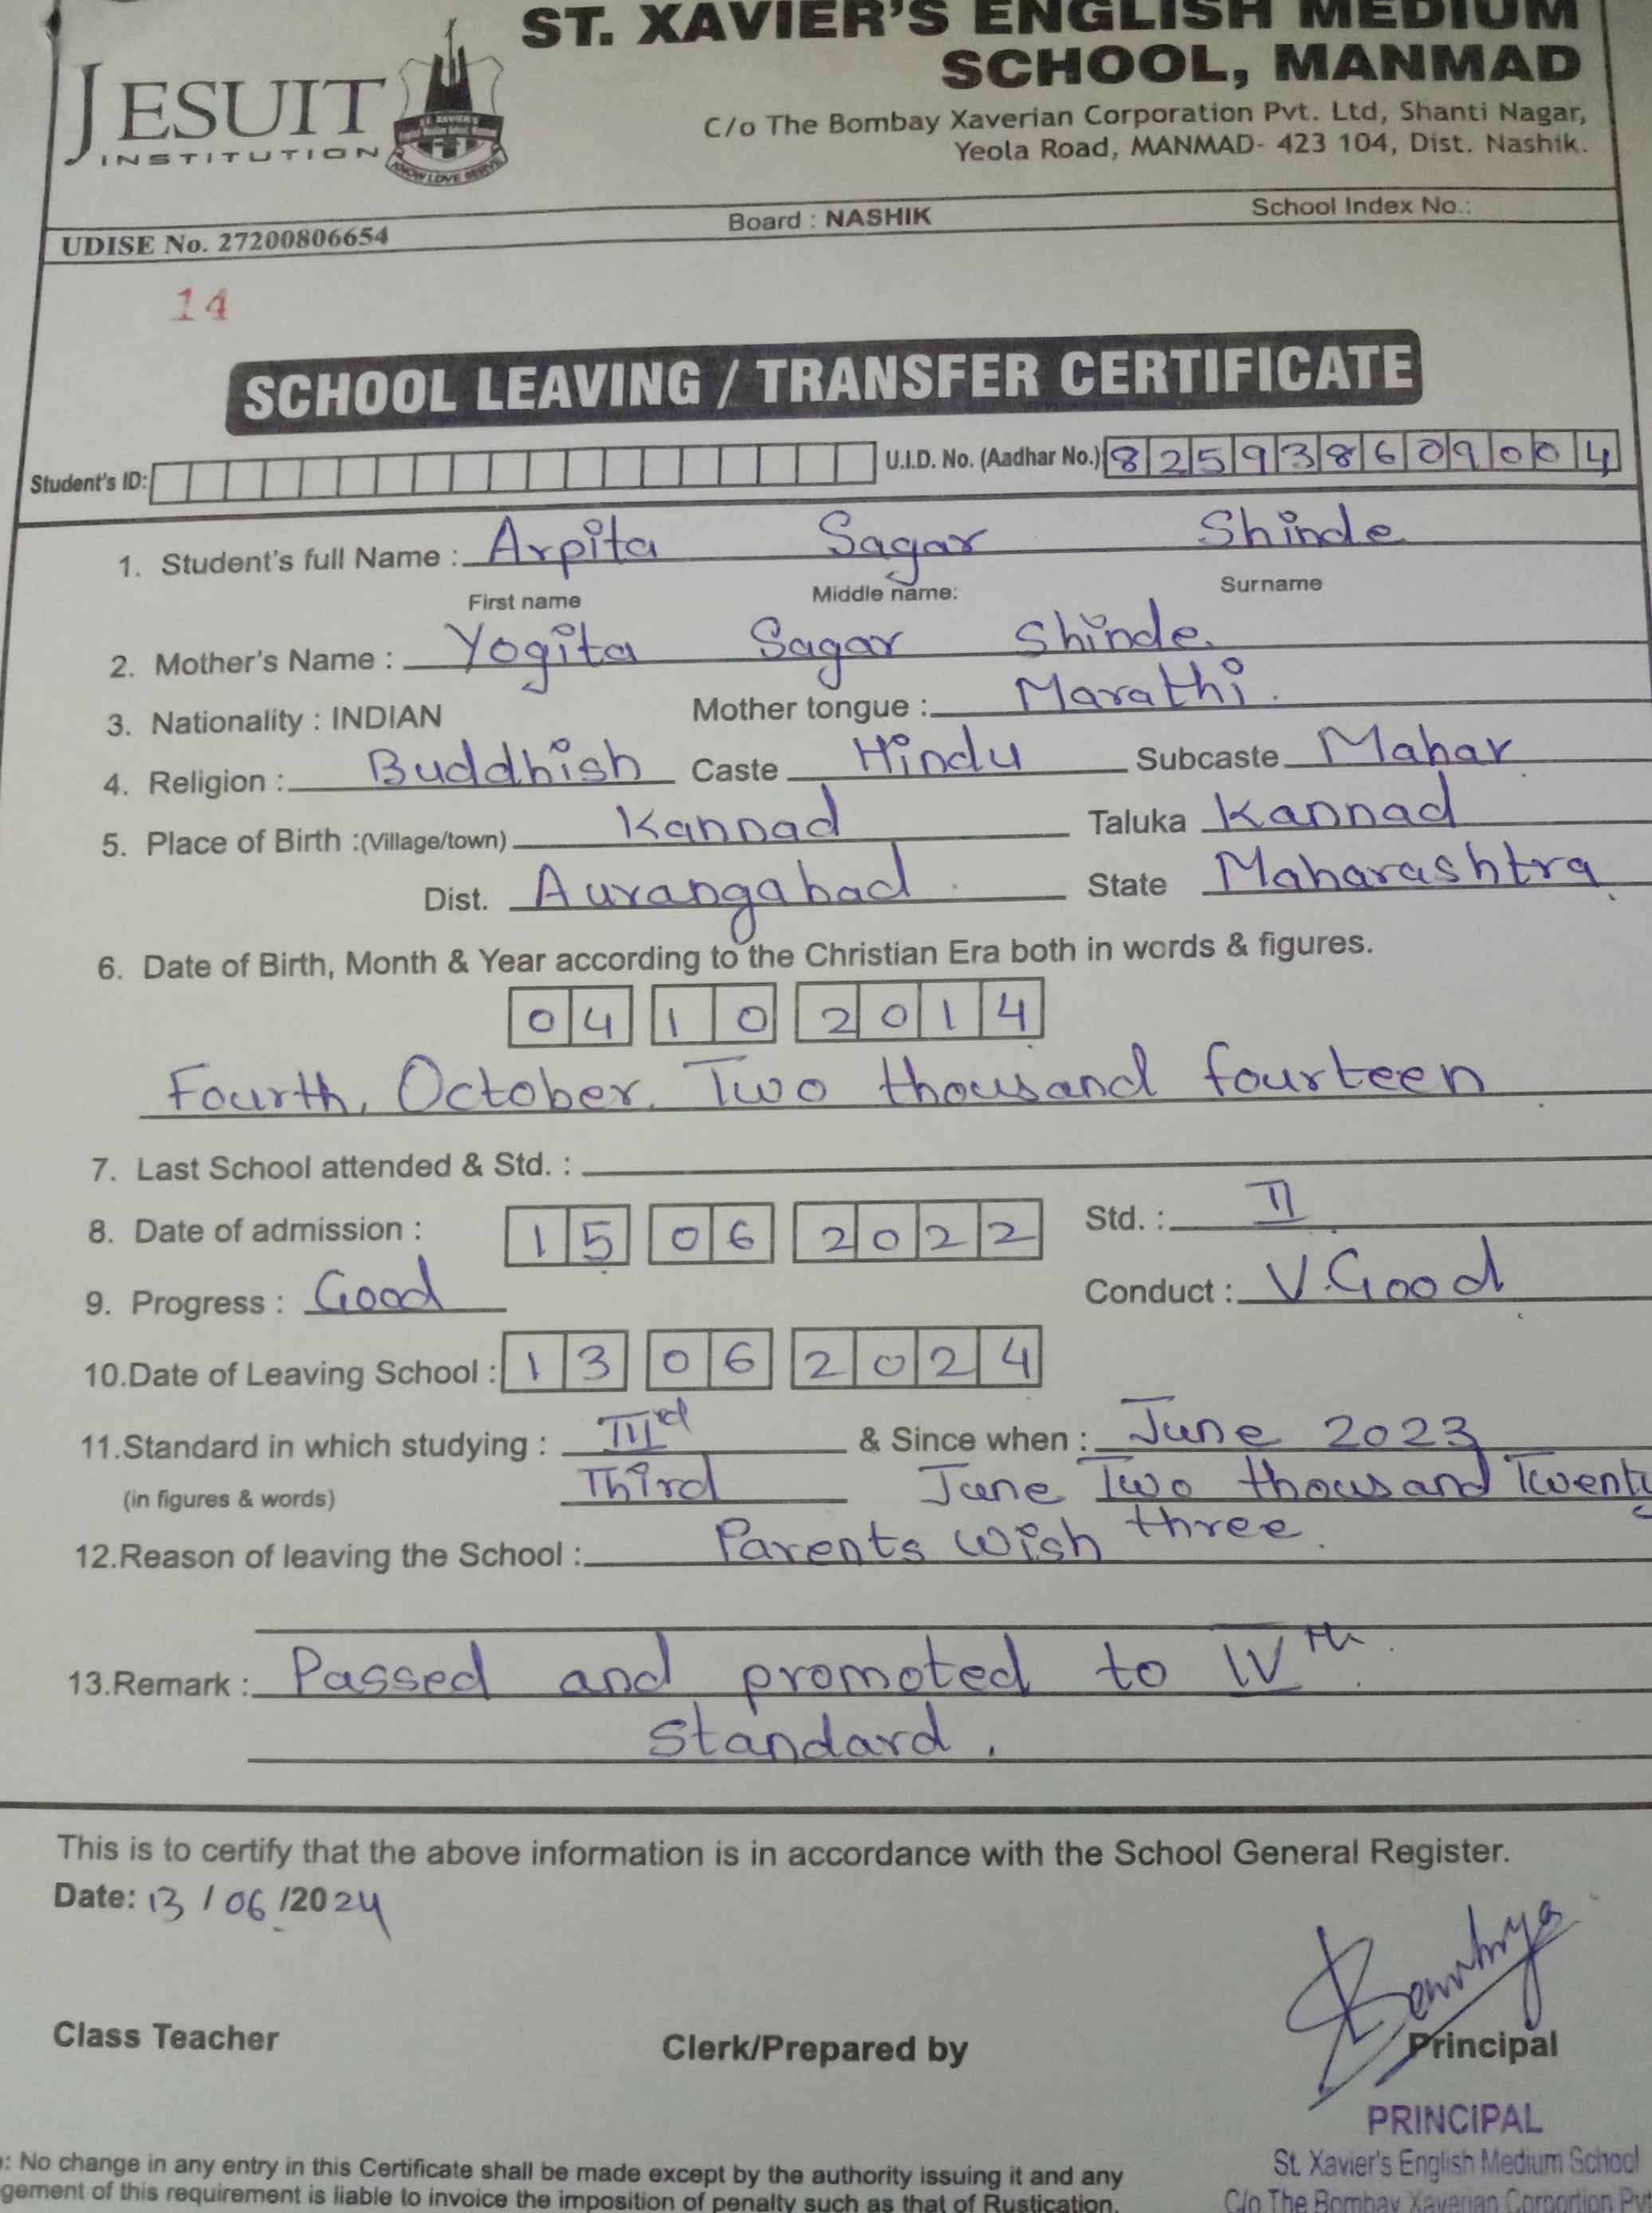 ST. XAVIER'S ENGLISH MEDIUM
SCHOOL, MANMAD
JESUIT
INSTITUTION
KNOW LOVE SERVE
C/o The Bombay Xaverian Corporation Pvt. Ltd, Shanti Nagar,
Yeola Road, MANMAD- 423 104, Dist. Nashik.
UDISE No. 27200806654 Board : NASHIK School Index No.:
14
SCHOOL LEAVING / TRANSFER CERTIFICATE
Student's ID: U.I.D. No. (Aadhar No.) 825938609004
1. Student's full Name : Arpita Sagar Shinde
First name Middle name: Surname
2. Mother's Name : Yogita Sagar Shinde
3. Nationality : INDIAN Mother tongue : Marathi.
4. Religion : Buddhish Caste Hindu Subcaste Mahar
5. Place of Birth :(Village/town) Kannad Taluka Kannad
Dist. Aurangabad State Maharashtra
6. Date of Birth, Month & Year according to the Christian Era both in words & figures.
04 10 2014
Fourth, October, Two thousand fourteen
7. Last School attended & Std. :
8. Date of admission : 15 06 2022 Std. : II
9. Progress : Good Conduct : V.Good
10.Date of Leaving School : 13 06 2024
11.Standard in which studying : IIIrd & Since when : June 2023
(in figures & words) Third June Two thousand Twenty
three.
12.Reason of leaving the School : Parents wish
13.Remark : Passed and promoted to IVth
standard.
This is to certify that the above information is in accordance with the School General Register.
Date: 13 / 06 /2024
Class Teacher Clerk/Prepared by Principal
PRINCIPAL
St. Xavier's English Medium School
C/o The Bombay Xaverian Corportion Pvt
: No change in any entry in this Certificate shall be made except by the authority issuing it and any
gement of this requirement is liable to invoice the imposition of penalty such as that of Rustication.